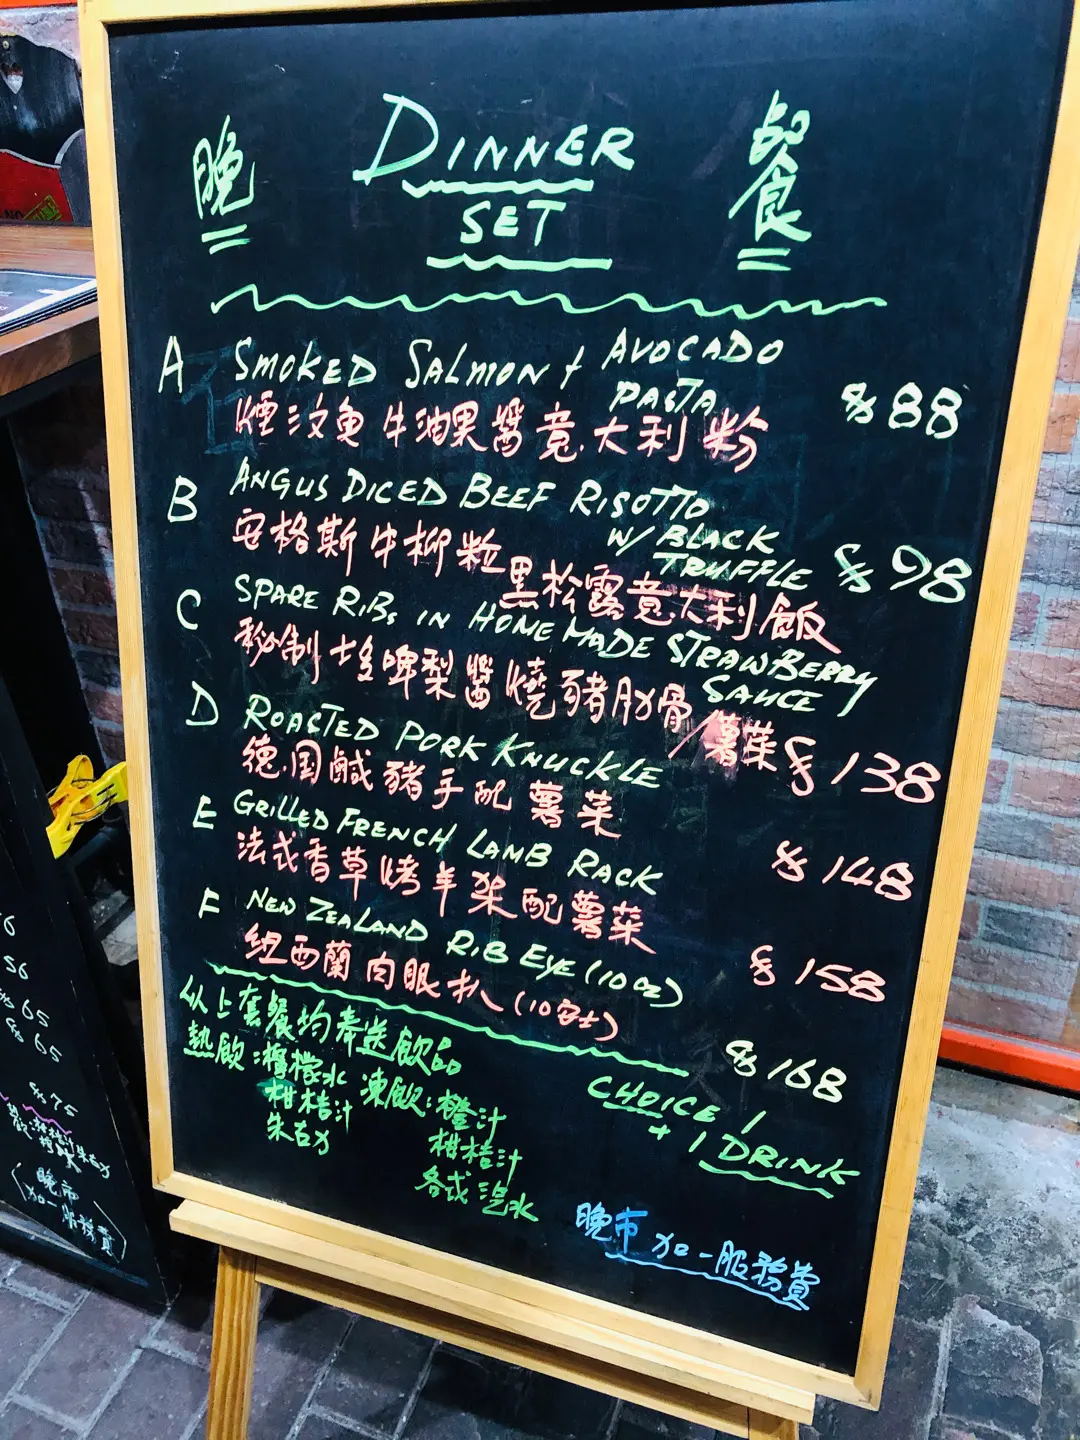 晚 DINNER 餐
SET
A SMOKED SALMON + AVOCADO
PASTA $88
煙三文魚牛油果醬意大利粉
B ANGUS DICED BEEF RISOTTO
W/ BLACK
TRUFFLE $98
安格斯牛柳粒黑松露意大利飯
C SPARE RIBS IN HOME MADE STRAWBERRY
SAUCE
秘制士多啤梨醬燒豬肋骨/薯菜 $138
D ROASTED PORK KNUCKLE
德国鹹豬手配薯菜 $148
E GRILLED FRENCH LAMB RACK
法式香草烤羊架配薯菜 $158
F NEW ZEALAND RIB EYE (10oz)
紐西蘭肉眼扒(10安士) $168
以上套餐均奉送飲品
熱飲:檸檬水
柑桔汁
朱古力
凍飲:橙汁
柑桔汁
各式汽水
CHOICE 1
+ 1 DRINK
晚市加一服務費
56
$65
$65
$75
晚市
(加一服務費)